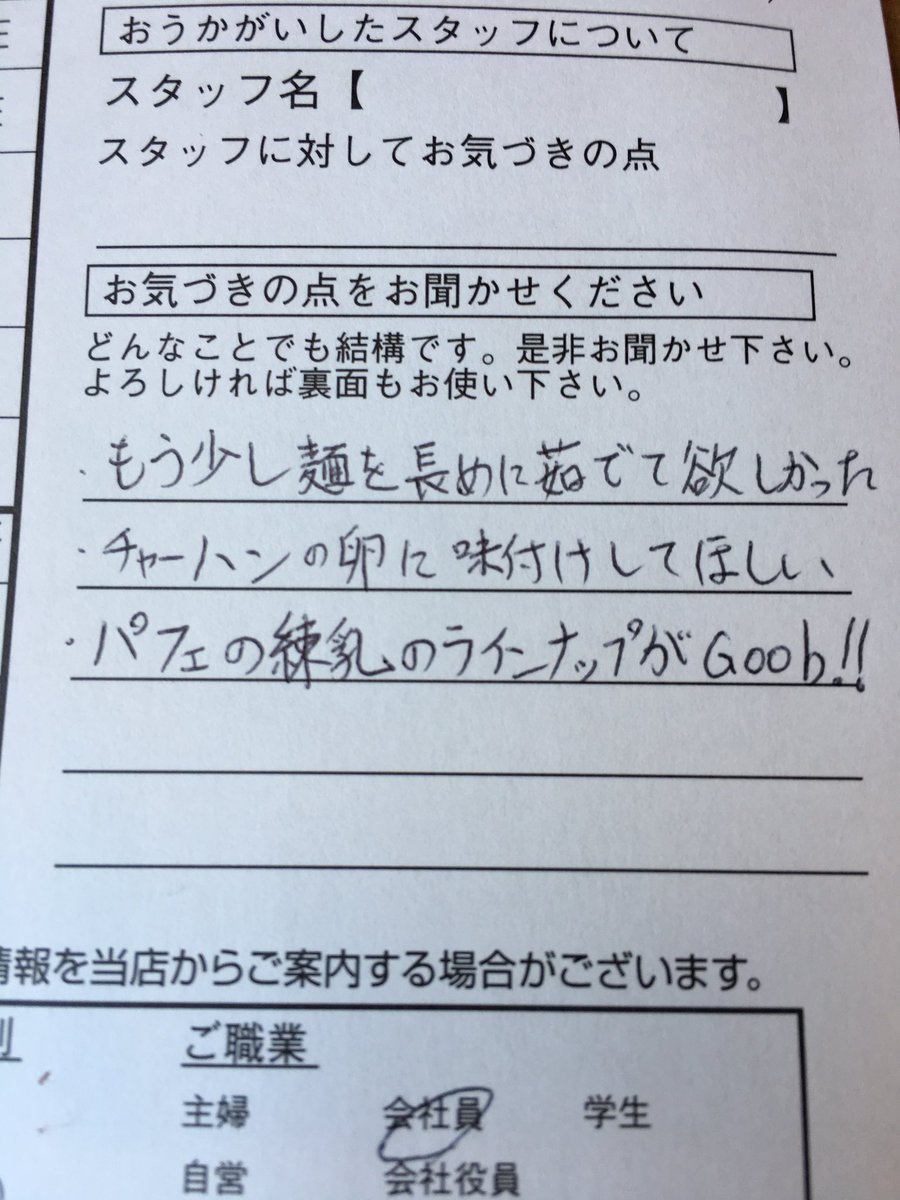 おうかがいしたスタッフについて
スタッフ名【 】
スタッフに対してお気づきの点
お気づきの点をお聞かせください
どんなことでも結構です。是非お聞かせ下さい。
よろしければ裏面もお使い下さい。
・もう少し麺を長めに茹でて欲しかった
・チャーハンの卵に味付けしてほしい
・パフェの練乳のラインナップがGood!!
情報を当店からご案内する場合がございます。
ご職業
主婦 会社員 学生
自営 会社役員